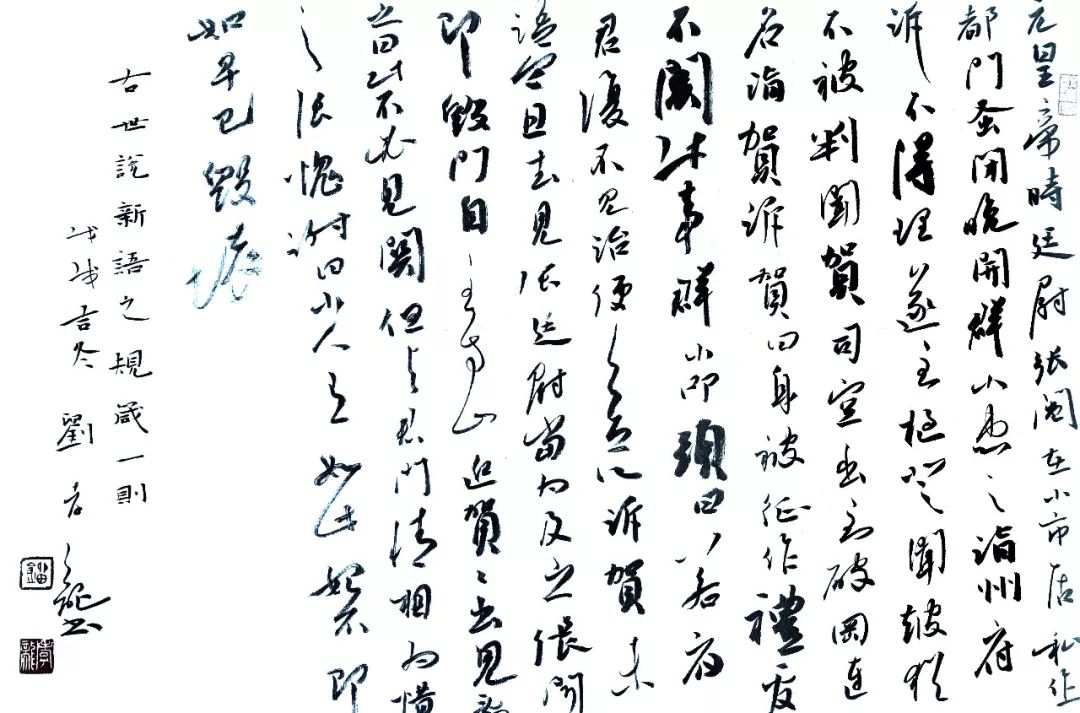 元皇帝時廷尉張闓在小市居私作
都門蚤閉晚開群小患之詣州府
訴不得理遂至檛登聞鼓猶
不被判聞賀司空出至破岡連
名詣賀訴賀曰身被征作禮官
不關此事群小叩頭曰若府
君復不見治便無所訴賀未
語令且去見張廷尉當為及之張聞
即毀門自至方山迎賀賀出見辭
之曰此不必見關但與君門情相為惜
之張愧謝曰小人有如此始不即
知早已毀壞
古世說新語之規箴一則
戊戌吉冬 劉孝龍書